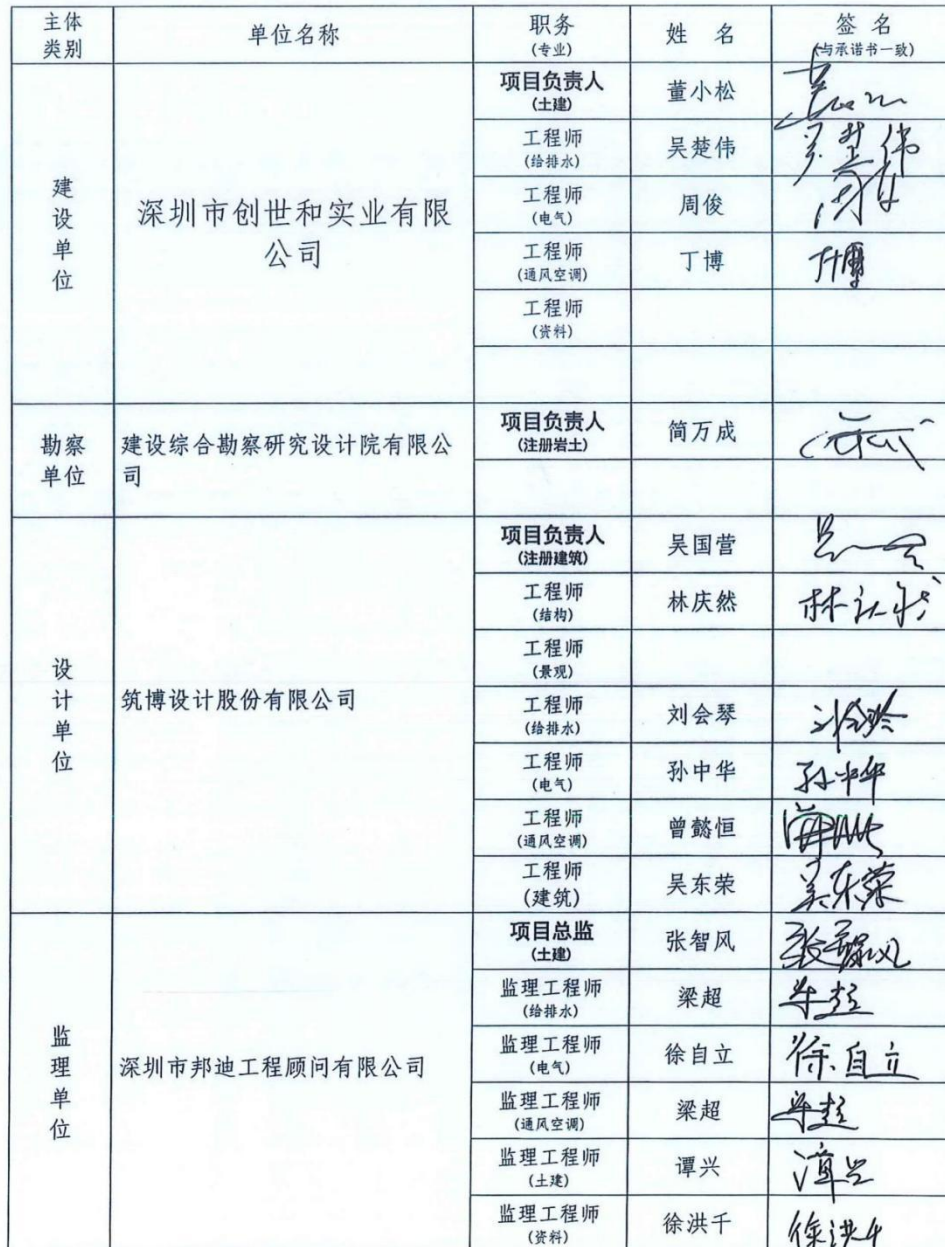 主体类别 单位名称 职务(专业) 姓 名 签 名(与承诺书一致)
建设单位 深圳市创世和实业有限公司
项目负责人(土建) 董小松
工程师(给排水) 吴楚伟 吴楚伟
工程师(电气) 周俊 周俊
工程师(通风空调) 丁博 丁博
工程师(资料)
勘察单位 建设综合勘察研究设计院有限公司 项目负责人(注册岩土) 简万成
设计单位 筑博设计股份有限公司
项目负责人(注册建筑) 吴国营
工程师(结构) 林庆然
工程师(景观)
工程师(给排水) 刘会琴
工程师(电气) 孙中华 孙中华
工程师(通风空调) 曾懿恒
工程师(建筑) 吴东荣 吴东荣
监理单位 深圳市邦迪工程顾问有限公司
项目总监(土建) 张智风 张智风
监理工程师(给排水) 梁超
监理工程师(电气) 徐自立 徐自立
监理工程师(通风空调) 梁超
监理工程师(土建) 谭兴
监理工程师(资料) 徐洪千 徐洪千